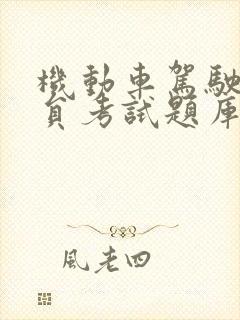 機動車駕駛
員考試題庫
風老四